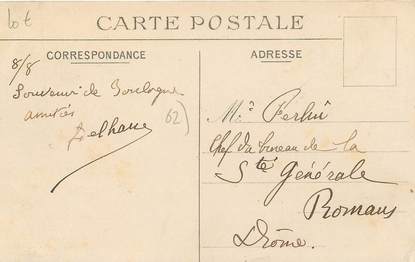 Lot
CARTE POSTALE
CORRESPONDANCE
ADRESSE
8/8
Souvenir de Boulogne
amitiés
Delhaue
62)
M.r Ferlin
Chef du bureau de la
Sté Générale
Romans
Drôme.